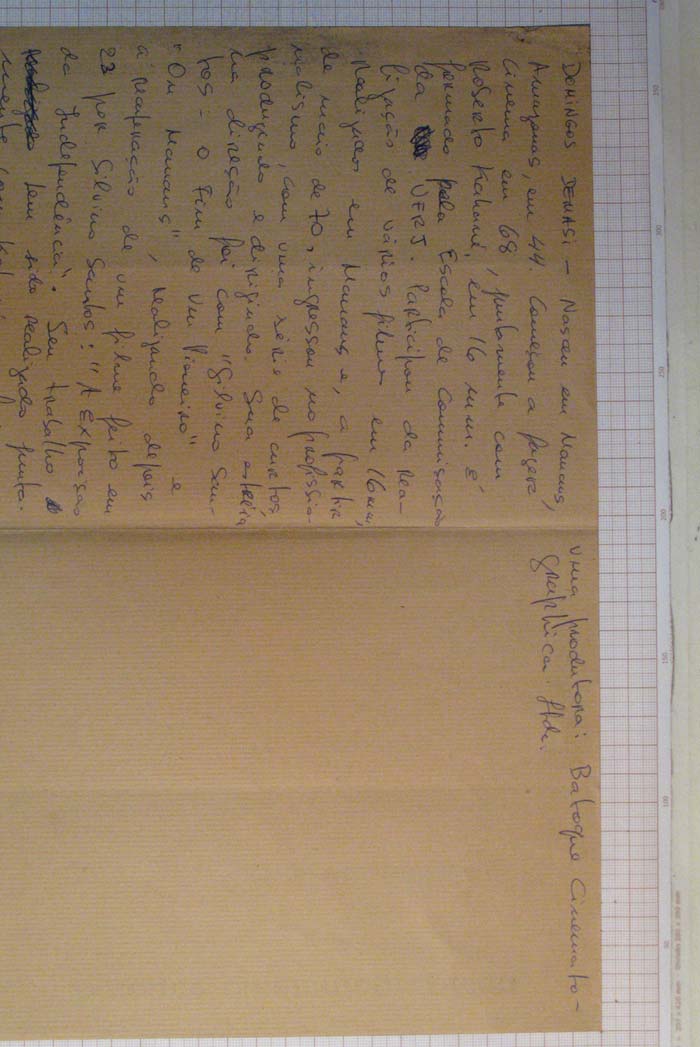 DOMINGOS DEMASI — Nasceu em Manaus,
Amazonas, em 44. Começou a fazer
Cinema em 68, juntamente com
Roberto Kahané, em 16 mm. É
formado pela Escola de Comunicação
da UFRJ. Participou da rea-
lização de vários filmes em 16mm,
realizados em Manaus e, a partir
de maio de 70, ingressou no profissio-
nalismo, com uma série de curtos,
produzindo e dirigindo. Sua estréia
na direção foi com "Silvino San-
tos - O Fim de Um Pioneiro" e
"On Manaus", realizando depois
a reapuração de um filme feito em
23 por Silvino Santos: "A Exposição
da Independência". Seu trabalho
tem sido realizado junta-
mente com
uma produtora: Batoque Cinemato-
graphica Ltda.